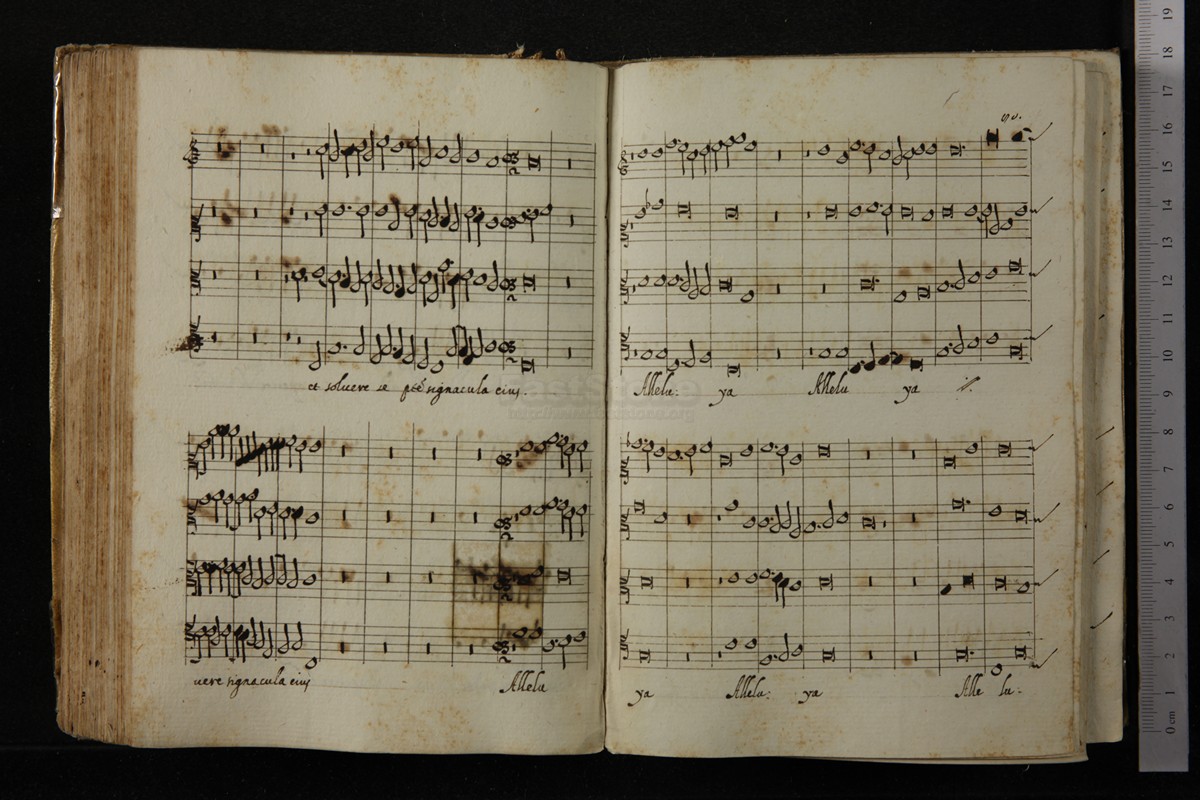 et solvere se ptē signacula eius.
vere signacula eius
Allelu
Allelu: ya Allelu ya ij.
ya Allelu: ya Alle lu:
0 cm 1 2 3 4 5 6 7 8 9 10 11 12 13 14 15 16 17 18 19